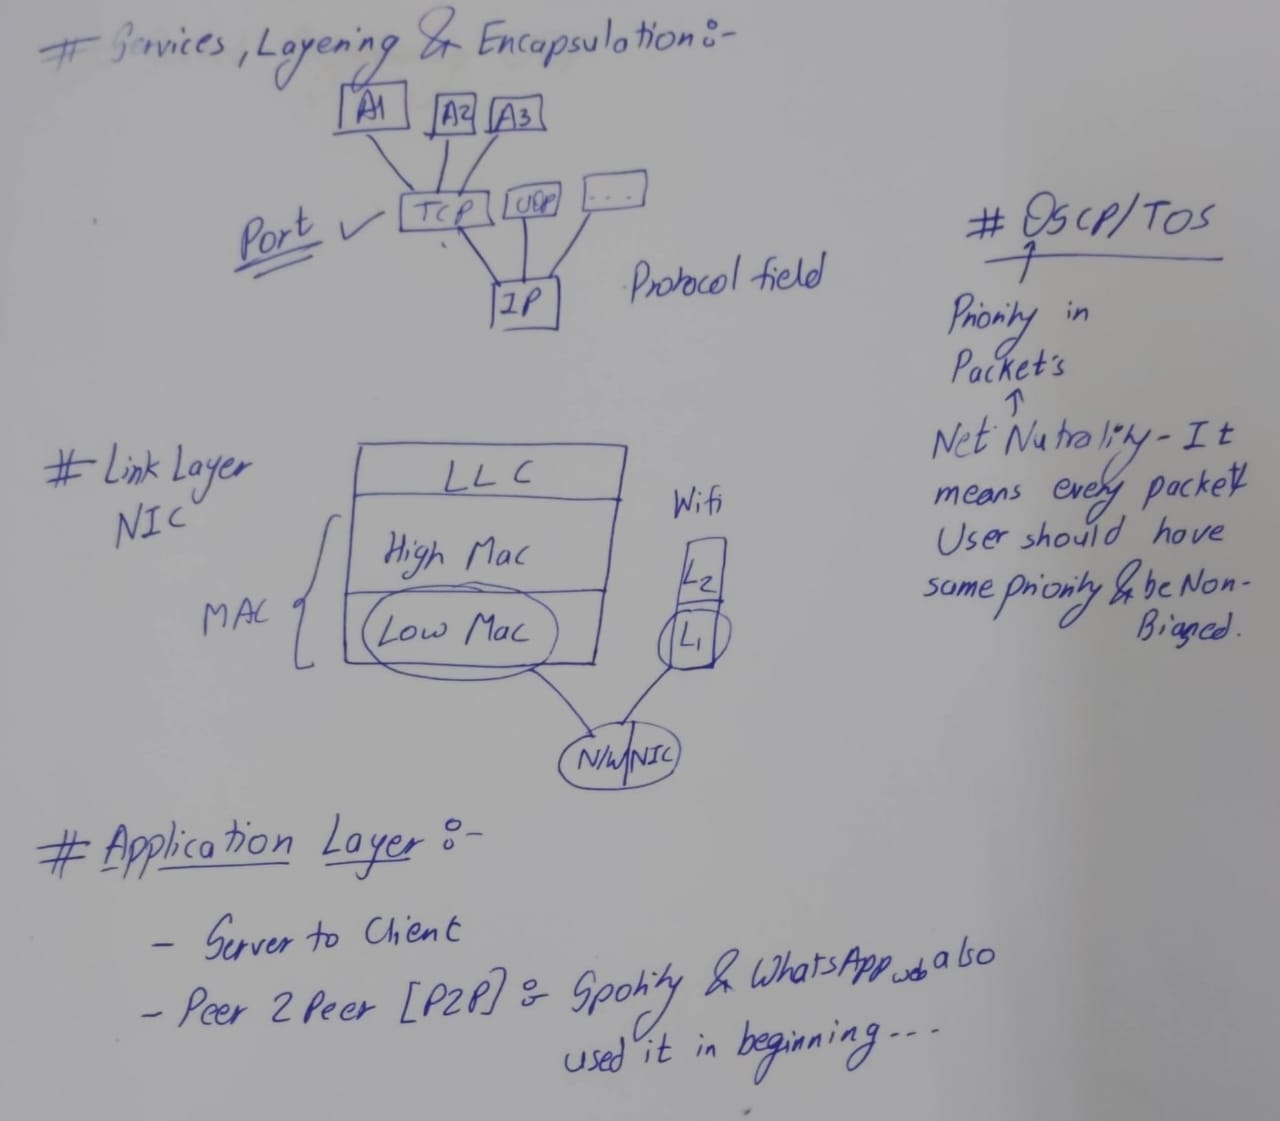 # Services, Layering & Encapsulation:-
A1 A2 A3
Port ✓ TCP UDP ...
IP Protocol field
# DSCP/TOS
↑
Priority in
Packet's
↑
Net Nutrality - It
means every packet/
User should have
same priority & be Non-
Biased.
# Link Layer
NIC
LLC
MAC { High Mac
Low Mac
Wifi
L2
L1
N/W NIC
# Application Layer :-
- Server to Client
- Peer 2 Peer [P2P] :- Spotify & WhatsApp web also
used it in beginning...